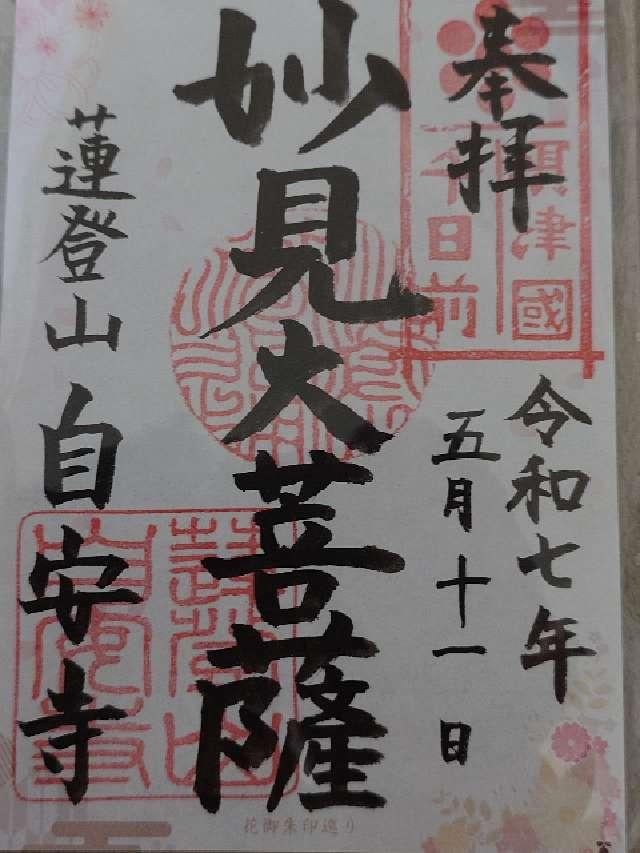 奉拝
令和七年
五月十一日
妙見大菩薩
蓮登山
自安寺
津國
日前
蓮登山
自安寺
花御朱印巡り